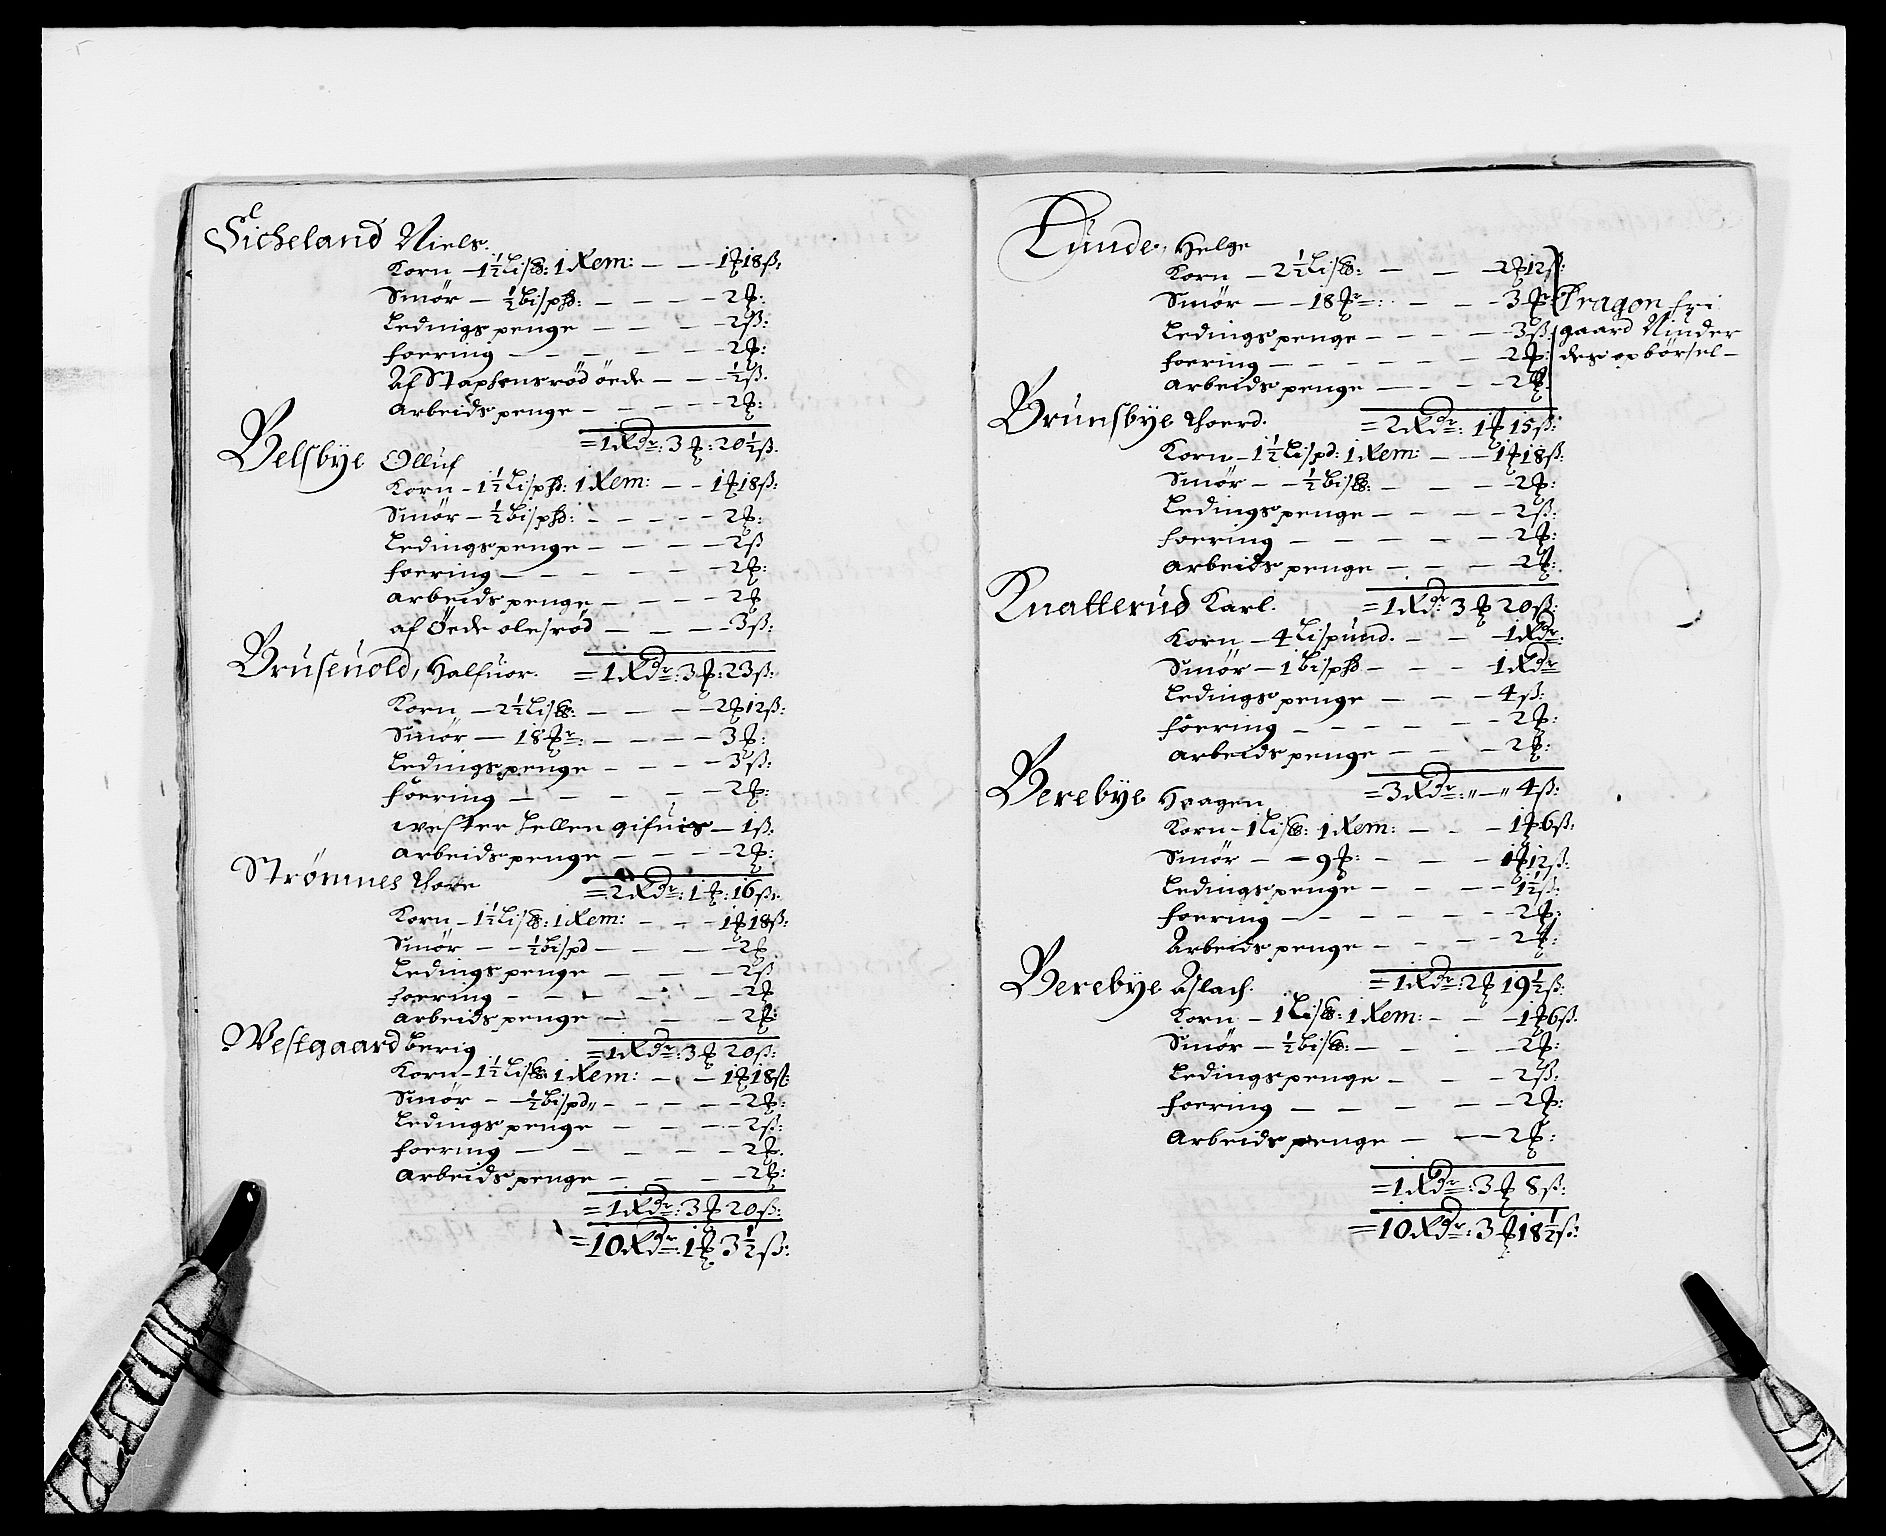 Sicheland Niels.
Korn – 1½ Lis℔: 1 Rem: – – 1 ₰ 18 ß:
Smör – ½ bisp℔: – – – – 2 ₰:
Lednigs penge – – – – 2 ß:
foering – – – – – – 2 ₰:
Af Staphensröd öede – – ½ ß.
Arbeids penge – – – – – 2 ₰:
= 1 Rdr: 3 ₰: 20½ ß.
Velsbye Olluf
Korn – 1½ Lisp℔: 1 Rem: – – 1 ₰ 18 ß:
Smör – ½ bisp℔: – – – – 2 ₰:
Ledings penge – – – – 2 ß
foering – – – – – – 2 ₰:
arbeids penge – – – – 2 ₰
af Öede olesröd – – – – 3 ß:
Bruseuold, Halfuor. = 1 Rdr: 3 ₰: 23 ß:
Korn – 2½ Lis℔: – – – 2 ₰ 12 ß:
Smör – 18 ₰r: – – – – 3 ₰:
Ledings penge – – – – 3 ß:
föering – – – – – 2 ₰:
wester Lellen gifuis – 1 ß.
Arbeids penge – – – – 2 ₰:
Strömnes Thore = 2 Rdr: 1 ₰: 16 ß:
Korn – 1½ Lis℔: 1 Rem: – – – 1 ₰ 18 ß:
Smör – – ½ bispd – – – – 2 ₰
Ledings penge – – – – 2 ß
foering – – – – – – 2 ₰
arbeids penge – – – – 2 ₰:
Westgaard berig = 1 Rdr: 3 ₰ 20 ß:
Korn – 1½ Lis℔ 1 Rem: – – – 1 ₰ 18 ß:
Smör – – ½ bispd „ – – – – 2 ₰:
Ledings penge – – – – 2 ß:
foering – – – – – 2 ₰.
arbeids penge – – – – 2 ₰:
= 1 Rdr: 3 ₰ 20 ß:
= 10 Rdr: 1 ₰ 3½ ß:
Lunde, Helge
Korn – 2½ Lis℔: – – – 2 ₰ 12 ß:
Smör – – 18 ₰r: – – – 3 ₰ Dragon fri
Ledings penge – – – – 3 ß gaard Ninder
foering – – – – – – 2 ₰: des opbörsel –
arbeids penge – – – – 2 ₰.
Brunsbye Thoerd. = 2 Rdr: 1 ₰ 15 ß:
Korn – 1½ Lispd: 1 Rem: – – 1 ₰ 18 ß:
Smör – – ½ bis℔: – – – 2 ₰:
Ledings penge – – – – 2 ß:
foering – – – – – – 2 ₰:
arbeids penge – – – – 2 ₰:
Knatterud Karl. = 1 Rdr: 3 ₰ 20 ß:
Korn – 4 Lispund. – – – 1 Rdr:
Smör – 1 bisp℔ – – – – 1 Rdr
Ledings penge – – – – 4 ß:
föering – – – – – – 2 ₰:
arbeids penge – – – – 2 ₰:
Berebye Haagen = 3 Rdr: „ – „ 4 ß:
Korn – 1 Lis℔: 1 Rem: – – – 1 ₰ 6 ß:
Smör – – 9 ₰: – – – 1 ₰ 12 ß:
Ledings penge – – – – 1½ ß:
foering – – – – – – 2 ₰:
Arbeids penge – – – – 2 ₰:
Berebye Aslach. = 1 Rdr: 2 ₰ 19½ ß:
Korn – 1 Lis℔: 1 Rem: – – – 1 ₰ 6 ß:
Smör – ½ bis℔: – – – – 2 ₰:
Ledings penge – – – 2 ß:
foering – – – – – 2 ₰:
Arbeids penge – – – 2 ₰:
= 1 Rdr: 3 ₰ 8 ß:
= 10 Rdr: 3 ₰ 18½ ß: